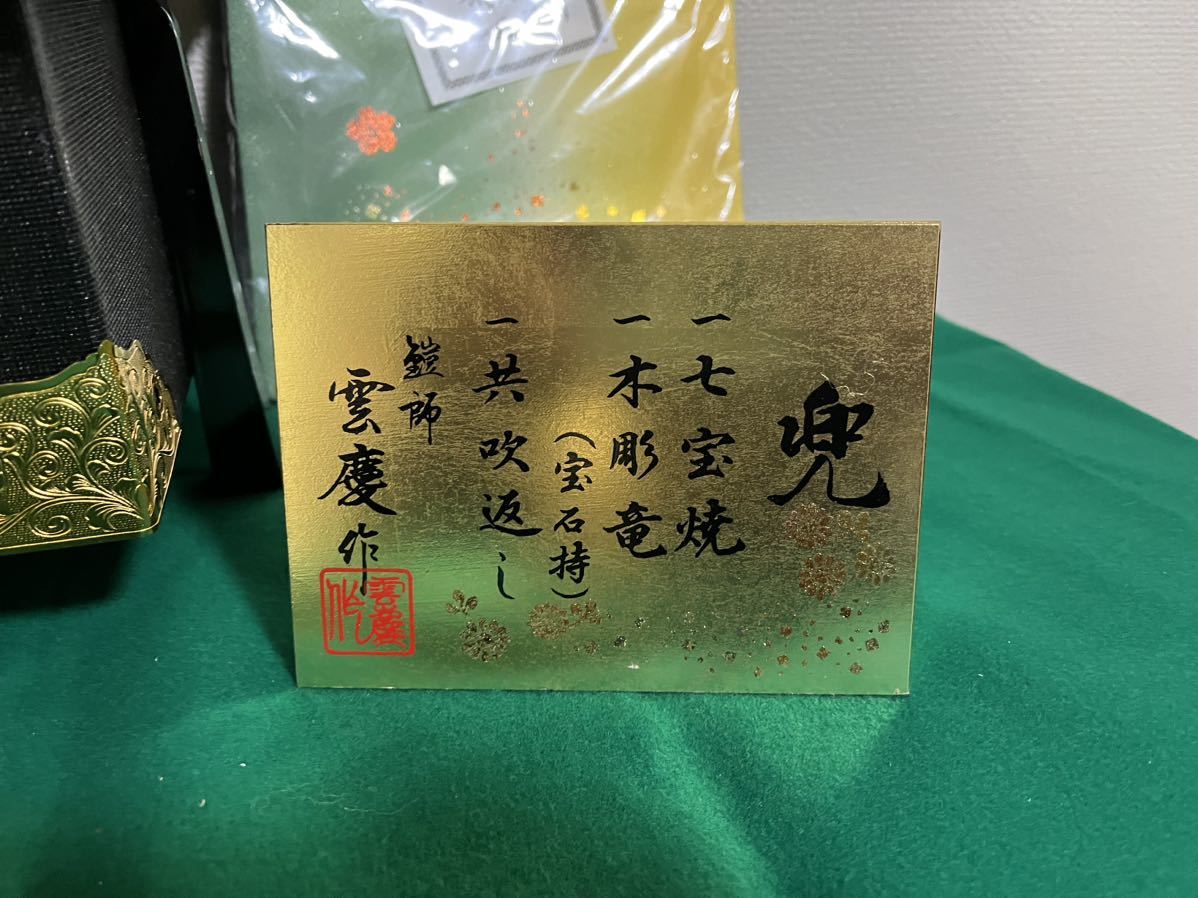 兜
一七宝焼
一木彫竜
(宝石持)
一共吹返し
鎧師
雲慶作